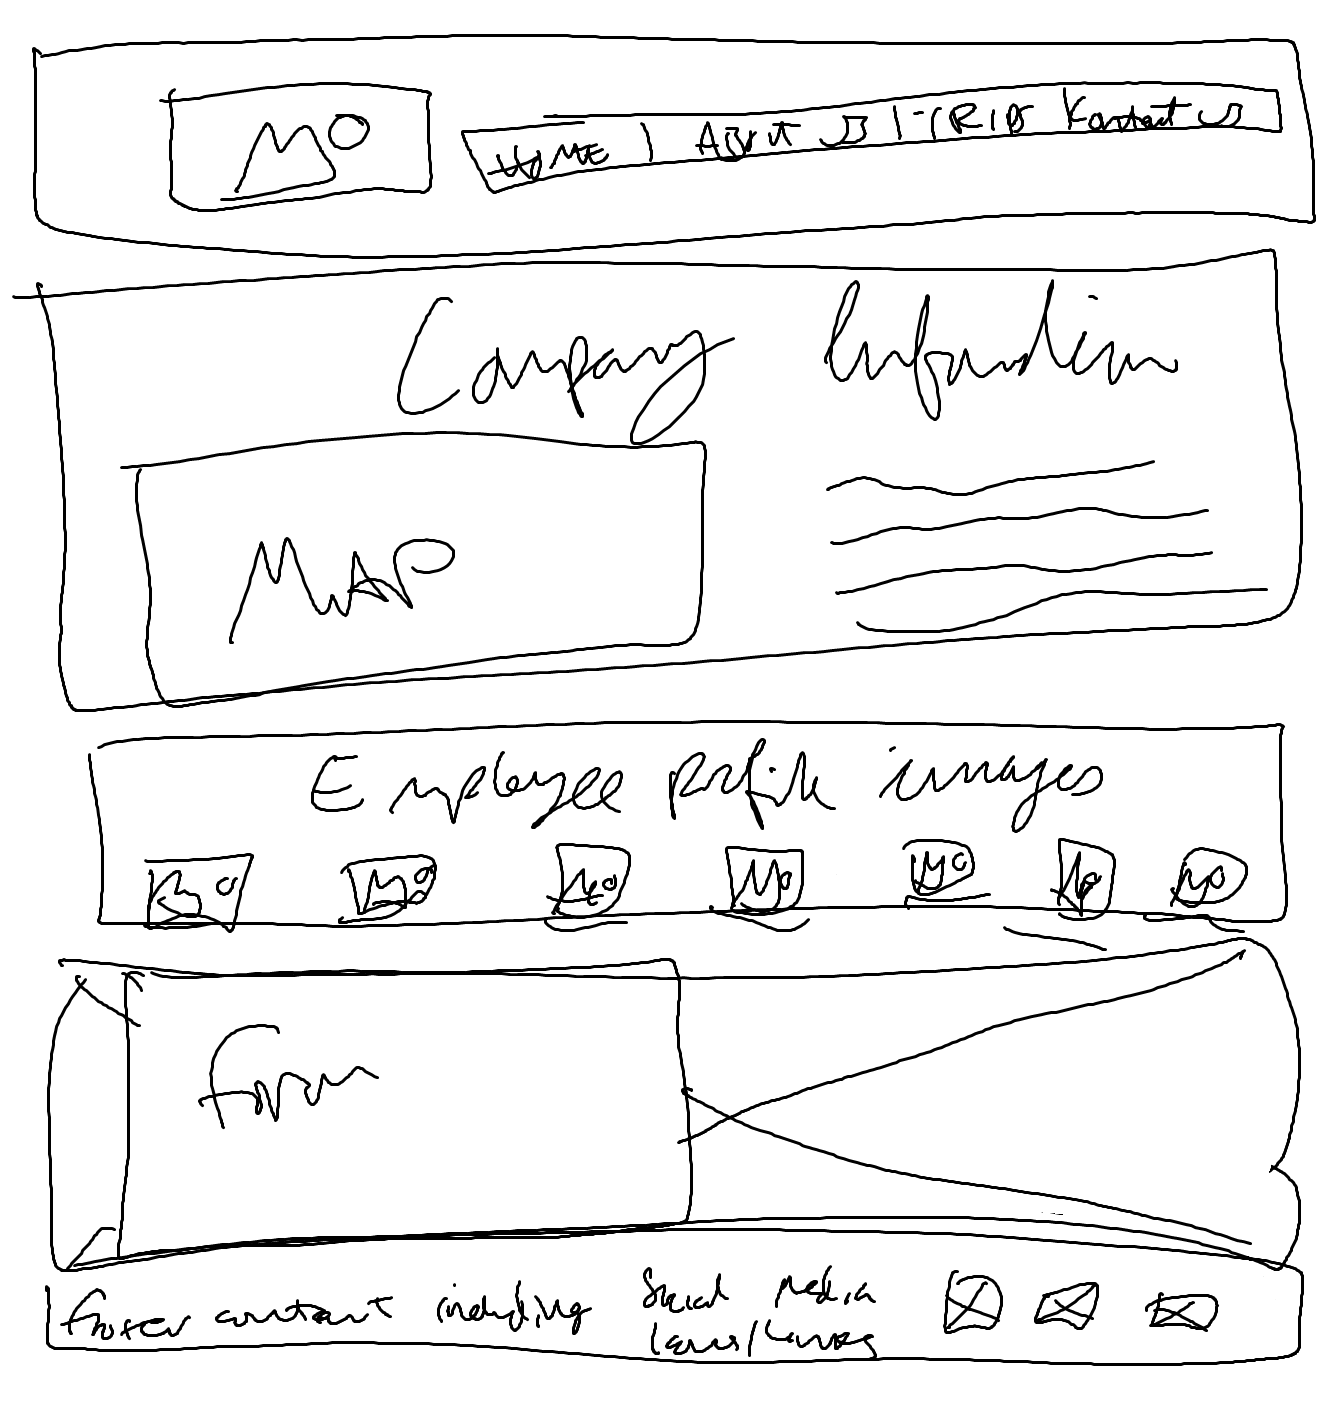 HOME | About us | TRIPS Kontact us
Company Information
MAP
Employee profile images
Form
Footer content including Social Media
Icons/